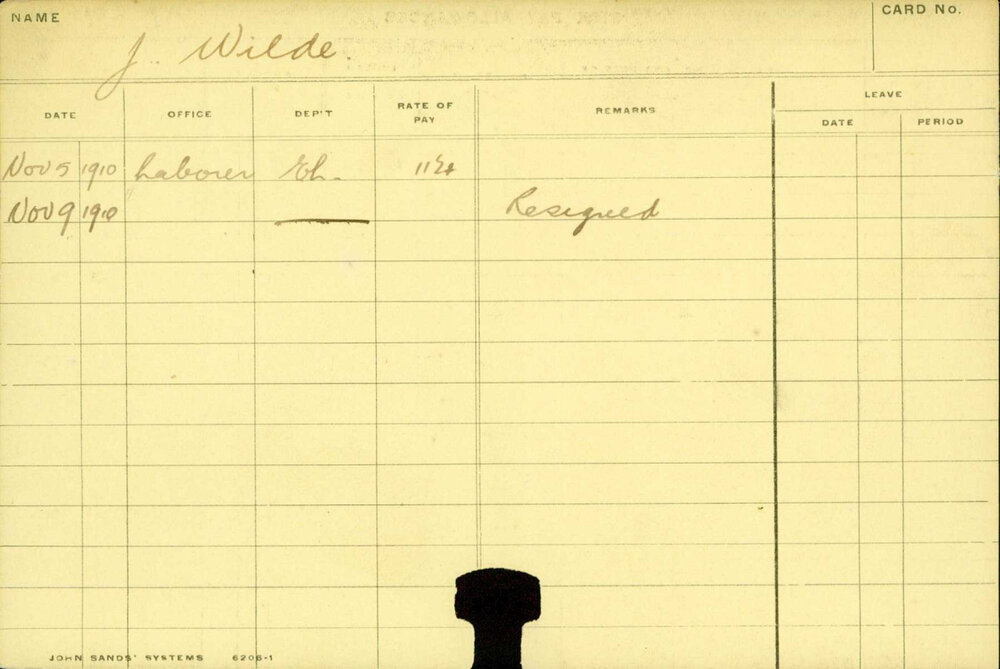 NAME
CARD No.
J. Wilde.
LEAVE
DATE OFFICE DEP'T RATE OF PAY REMARKS DATE PERIOD
Nov 5 1910 Laborer
Nov 9 1910 Resigned
JOHN SANDS' SYSTEMS 6206-1